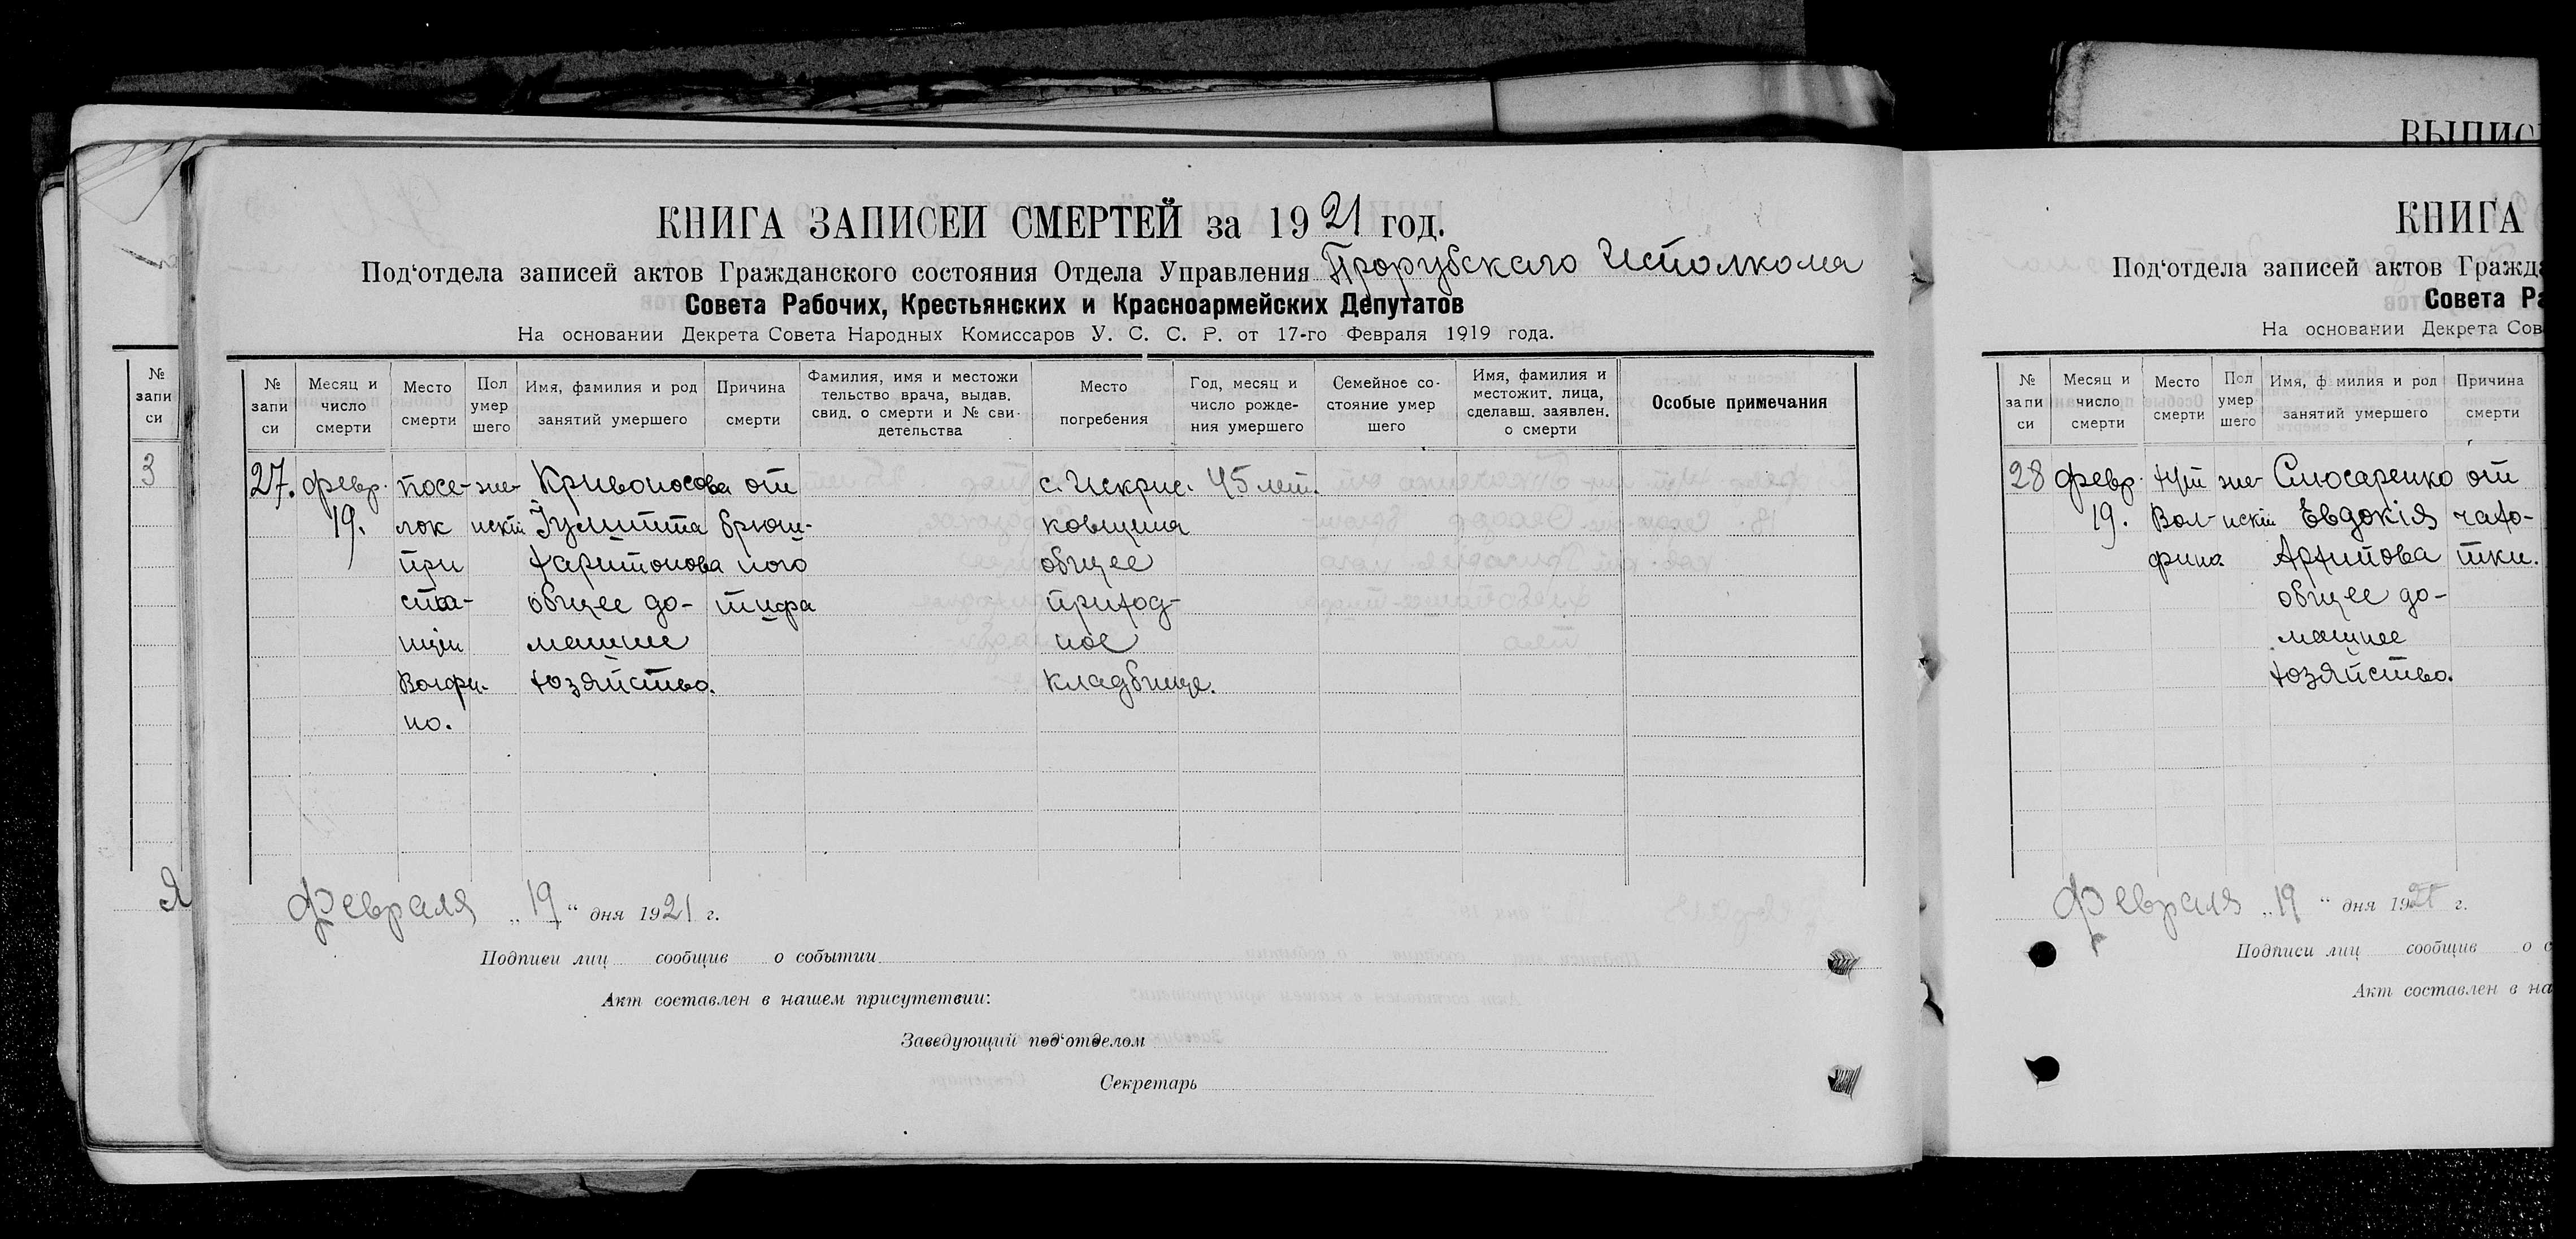 КНИГА ЗАПИСЕЙ СМЕРТЕЙ за 1921 год.
Под‘отдела записей актов Гражданского состояния Отдела Управления Прорубскаго Исполкома
Совета Рабочих, Крестьянских и Красноармейских Депутатов
На основании Декрета Совета Народных Комиссаров У. С. С. Р. от 17-го Февраля 1919 года.
№ запи си
Месяц и число смерти
Место смерти
Пол умер шего
Имя, фамилия и род занятий умершего
Причина смерти
Фамилия, имя и местожи тельство врача, выдав. свид. о смерти и № сви- детельства
Место погребения
Год, месяц и число рожде- ния умершего
Семейное со- стояние умер шего
Имя, фамилия и местожит. лица, сделавш. заявлен. о смерти
Особые примечания
27.
февр.
19.
посе-
лок
при
стан-
ции
Волфи-
но.
же-
нский
Кривоносова
Іулитта
Харитонова
общее до-
машнее
хозяйство.
от
брюш-
ного
тифа
с. Искрис-
ковщина
общее
приход-
ное
кладбище.
45 лет.
Февраля „19“ дня 1921 г.
Подписи лиц сообщив о событии
Акт составлен в нашем присутствии:
Заведующий под‘отделом
Секретарь
№ запи си
3
Я
ВЫПИС
КНИГА
Под‘отдела записей актов Гражда
Совета Ра
На основании Декрета Сов
№ запи си
Месяц и число смерти
Место смерти
Пол умер. шего
Имя, ф милия и род занятий умершего
Причина смерти
28
февр.
19.
хут.
Вол-
фина
же-
нский
Слюсаренко
Евдокія
Архипова
общее до-
машнее
хозяйство.
от
чахо-
тки.
Февраля „19“ дня 1921 г.
Подписи лиц сообщив о с
Акт составлен в на